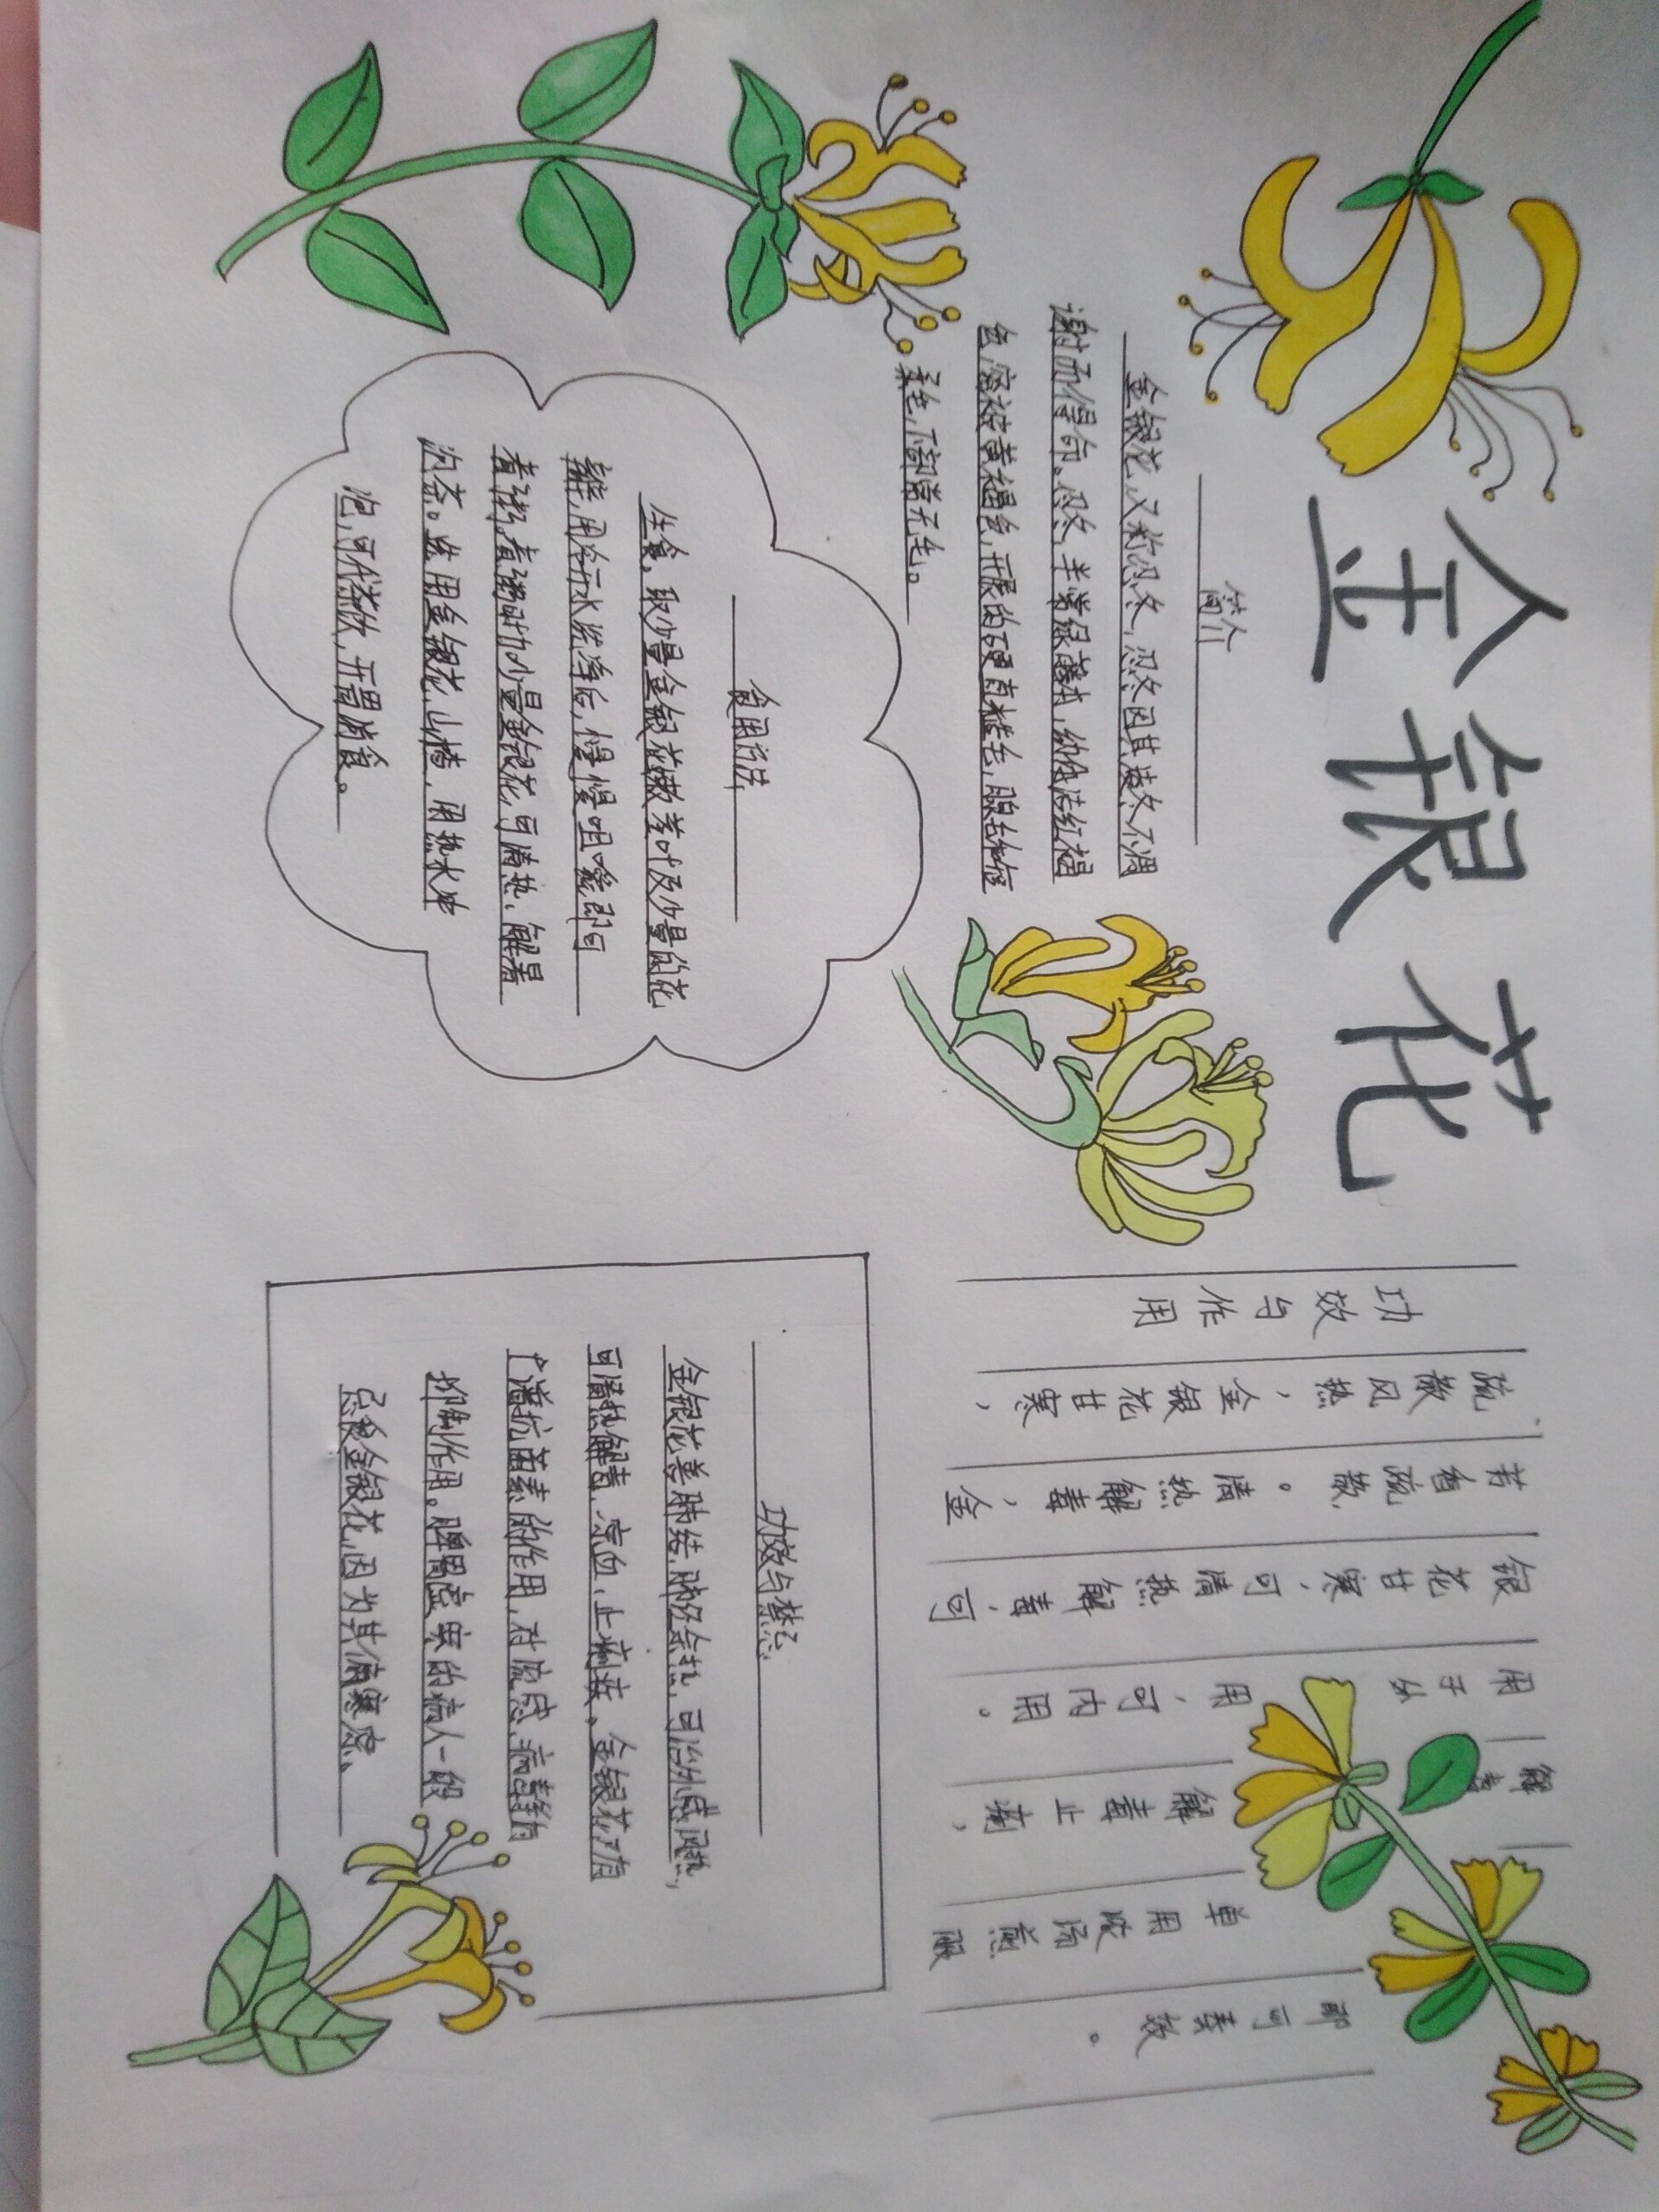 金银花
简介
金银花，又称忍冬，忍冬因其凌冬不凋
谢而得命。忍冬，半常绿藤本，幼枝洁红褐
色，密被黄褐色，开展的硬直糙毛，腺毛和短
柔毛，下部常无毛。
食用方法
生食。取少量金银花嫩茎叶及少量的花
瓣，用冷开水洗净后，慢慢咀嚼即可
煮粥，煮粥时加少量金银花，可清热、解暑
为奈。选用金银花，山楂，用热水冲
泡，可代茶饮，开胃消食。
功效与作用
疏散风热，金银花甘寒，
芳香疏散。清热解毒，金
银花甘寒，可清热解毒，可
用于外用，可内用。
解毒
解毒止痢，
单用浓汤煎服
即可奏效。
功效与禁忌
金银花善肺结，肺经余热，可治外感风热，
可清热解毒，凉血，止痢疾。金银花有
广谱抗菌素的作用，对流感病毒有
抑制作用。脾胃虚寒的病人一般
忌食金银花，因为其偏寒凉、